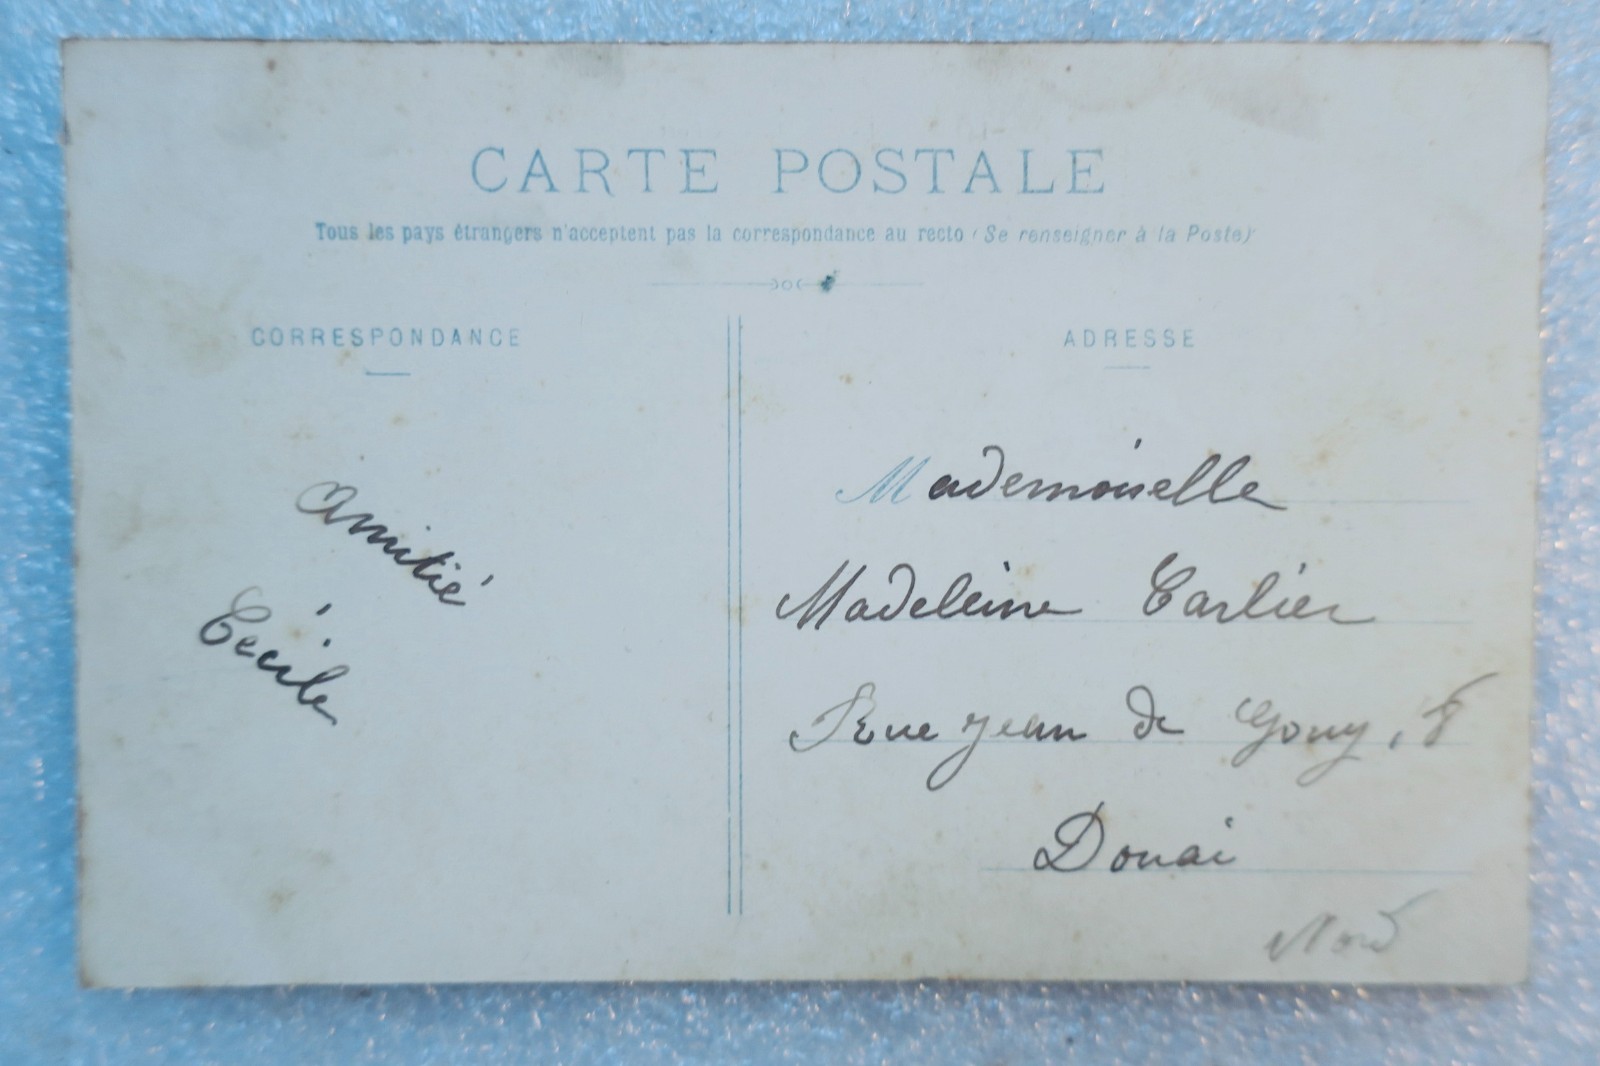 CARTE POSTALE
Tous les pays étrangers n'acceptent pas la correspondance au recto (Se renseigner à la Poste)
CORRESPONDANCE
Amitié
Cécile
ADRESSE
Mademoiselle
Madeleine Carlier
Rue Jean de Gouy, 8
Douai
Nord